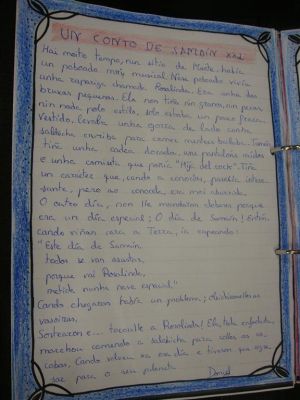 UN CONTO DE SAMAÍN XXI
Hai moito tempo, nun sitio de Marte, había
un poboado moi musical. Nese poboado vivía
unha rapariga chamada Rosalinda. Era unha das
bruxas pequenas. Ela non tiña nin grans, nin pezas
nin nada polo estilo, só estaba un pouco
vestido, levaba unha gorra de lado cunha
salchicha enriba para comer mentres bailaba. Tamén
tiña unha cadea dorada, uns pantalóns caídos
e unha camiseta que poñía "Mija del rock". Tiña
un carácter que, cando a coñecías, parecía intere-
sante, pero ao coñecela era moi aburrida.
O outro día, non lle mandaron deberes porque
era un día especial: O día de Samaín! Entón
cando viñan cara a Terra, ía rapeando:
"Este día de Samaín,
todos se van asustar,
porque vai Rosalinda,
metida nunha nave espacial."
Cando chegaron había un problema; olvidáronselles as
vasoiras.
Sortearon e... tocoulle a Rosalinda! Ela, toda enfadada,
marchou comendo a salchicha para collelas as
cobas. Cando volveu xa era día e tiveron que regre-
sar para o seu planeta.
Daniel